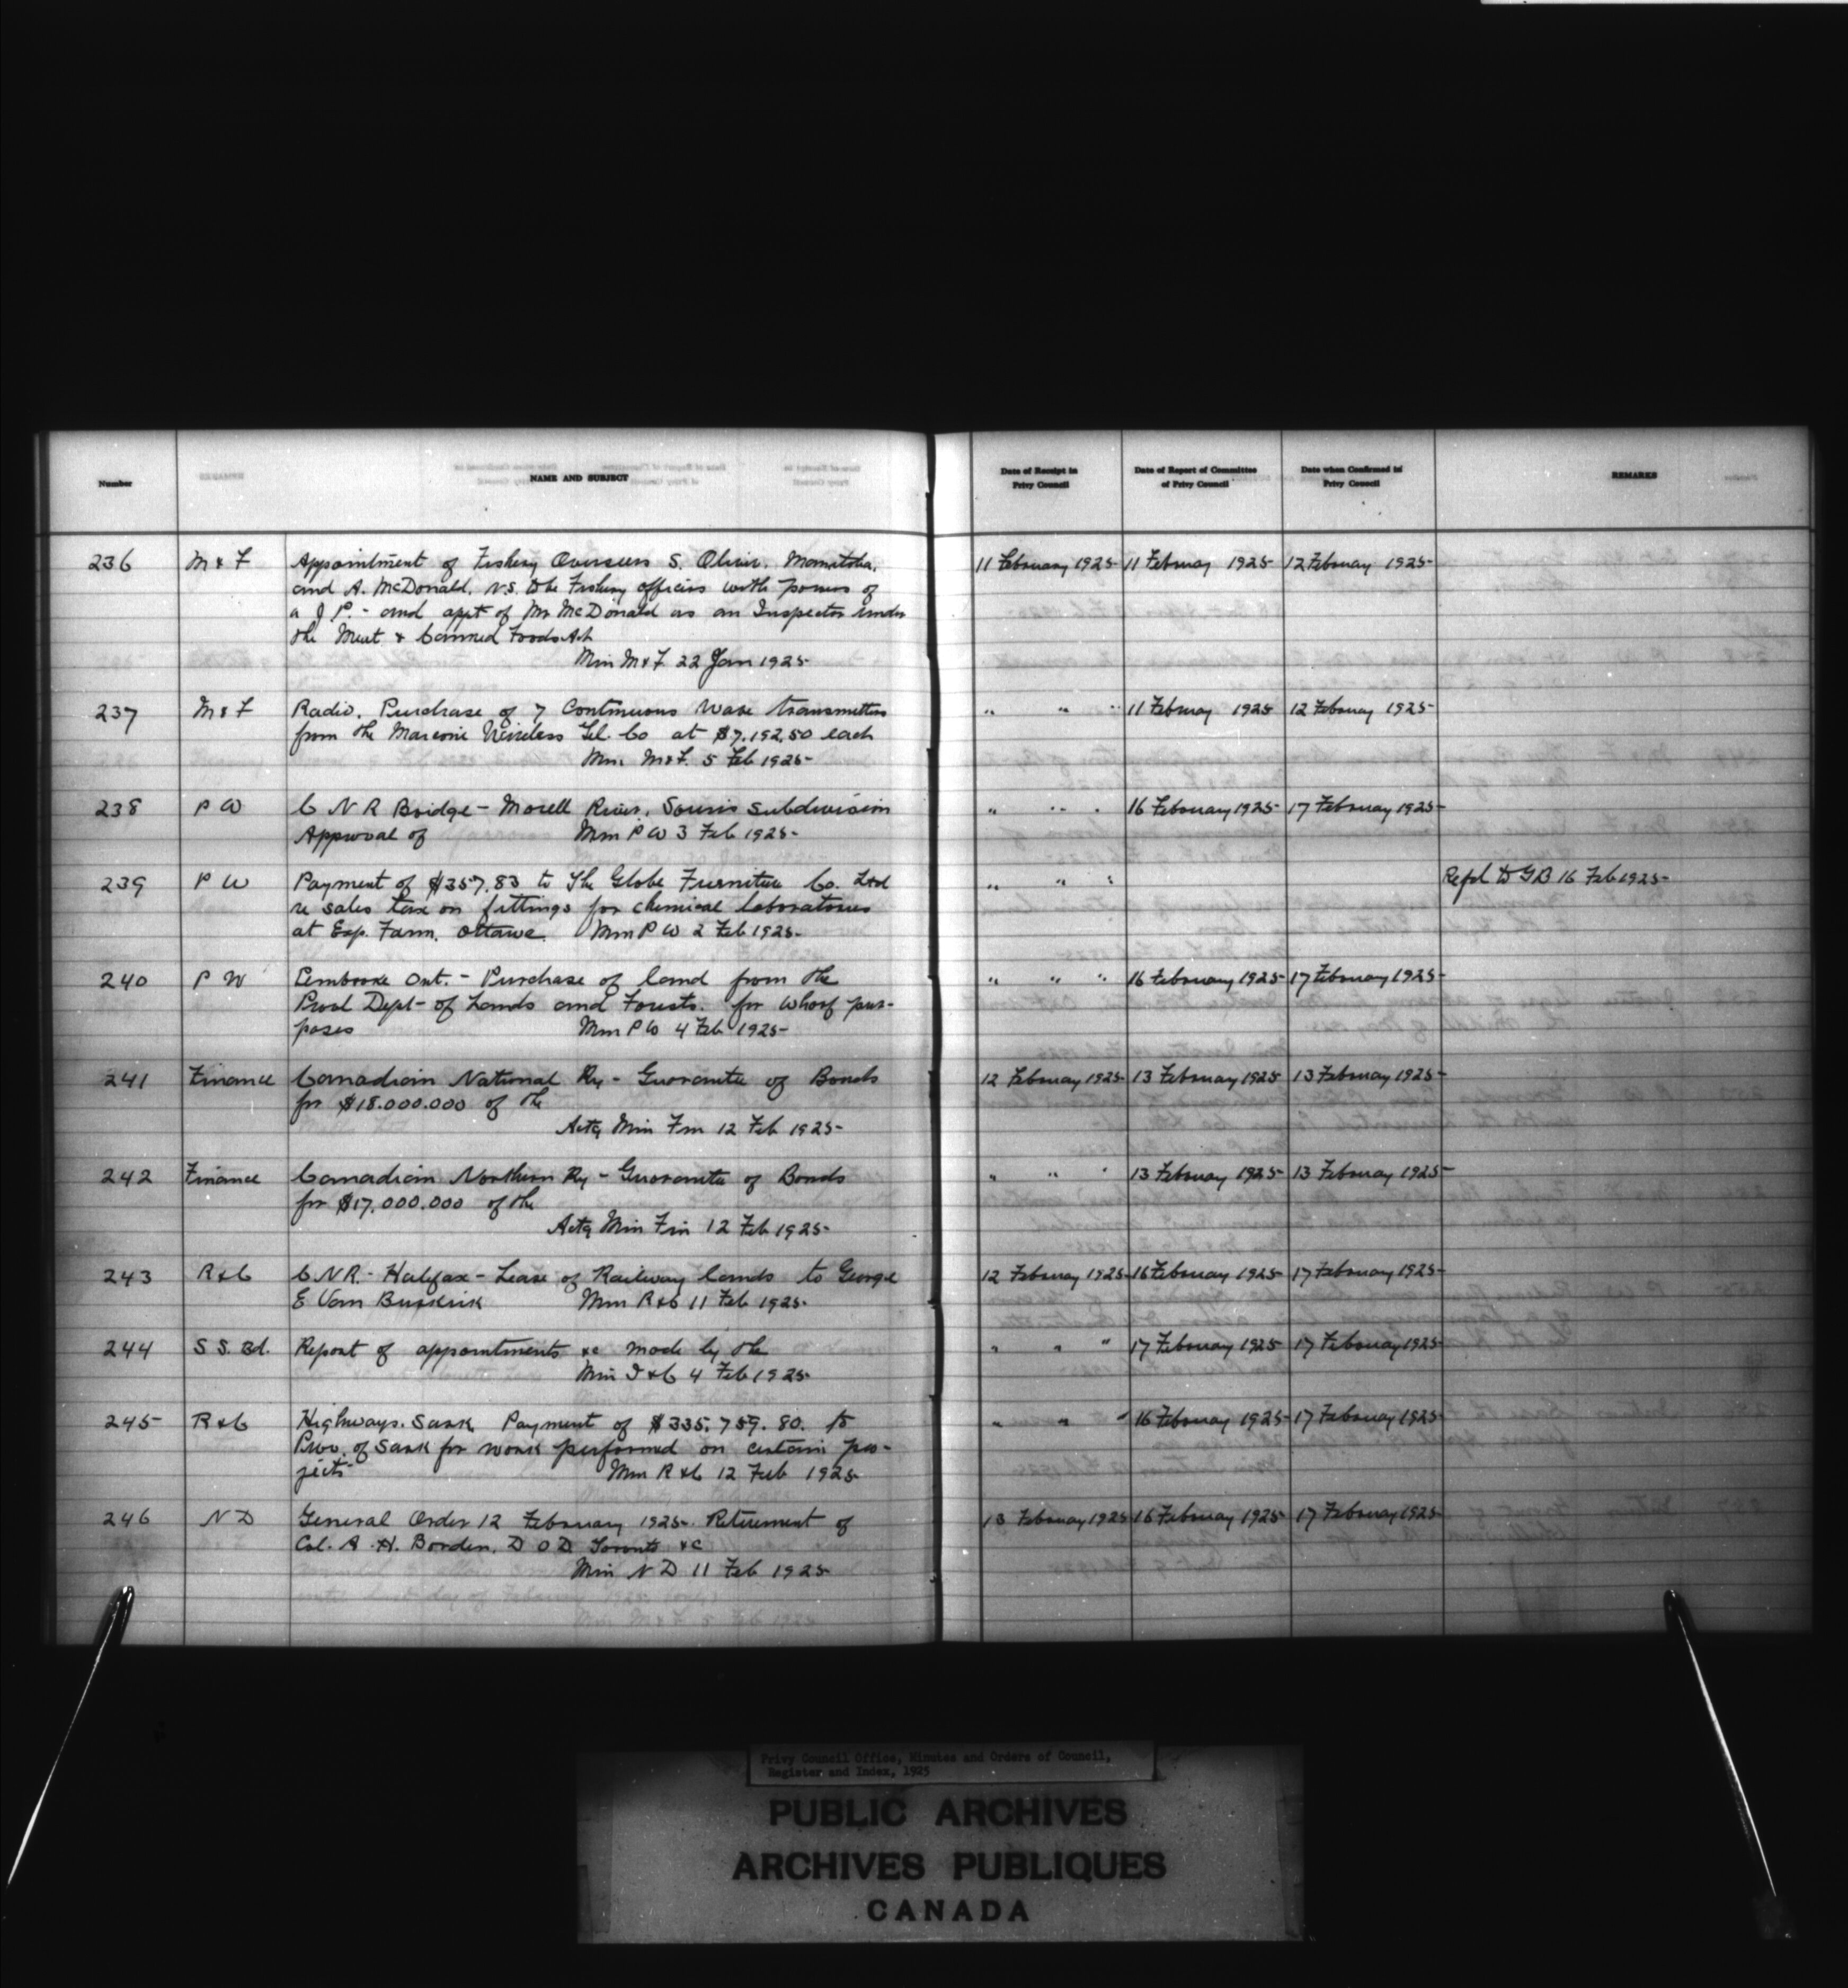 Number
NAME AND SUBJECT
Date of Receipt in
Privy Council
Date of Report of Committee
of Privy Council
Date when Confirmed in
Privy Council
REMARKS
236 M & F Appointment of Fishery Overseers S. Olivier, Manitoba, 11 February 1925 11 February 1925 12 February 1925
and A. McDonald, N.S. to be Fishery officers with powers of
a J P. - and appt of Mr McDonald as an Inspector under
the Meat & Canned Foods Act
Min M & F 22 Jan 1925
237 M & F Radio. Purchase of 7 Continuous Wave transmitters " " " 11 February 1925 12 February 1925
from the Marconi Wireless Tel. Co at $7,192.50 each
Min. M & F. 5 Feb 1925
238 P W C N R Bridge - Morell River, Souris subdivision " " " 16 February 1925 17 February 1925
Approval of Min P W 3 Feb 1925
239 P W Payment of $357.83 to The Globe Furniture Co. Ltd " " " Refd to GB 16 Feb 1925
re sales tax on fittings for chemical laboratories
at Exp. Farm, Ottawa. Min P W 2 Feb 1925
240 P W Pembroke Ont. - Purchase of land from the " " " 16 February 1925 17 February 1925
Provl Dept of Lands and Forests. for wharf pur-
poses Min P W 4 Feb 1925
241 Finance Canadian National Ry - Guarantee of Bonds 12 February 1925 13 February 1925 13 February 1925
for $18.000.000 of the
Actg Min Fin 12 Feb 1925
242 Finance Canadian Northern Ry - Guarantee of Bonds " " " 13 February 1925 13 February 1925
for $17,000.000 of the
Actg Min Fin 12 Feb 1925
243 R & C C.N.R. - Halifax - Lease of Railway lands to George 12 February 1925 16 February 1925 17 February 1925
E Van Buskirk Min R & C 11 Feb 1925
244 S S. Bd. Report of appointments &c made by the " " " 17 February 1925 17 February 1925
Min I & C 4 Feb 1925
245 R & C Highways. Sask. Payment of $335,759.80. to " " " 16 February 1925 17 February 1925
Prov. of Sask for work performed on certain pro-
jects Min R & C 12 Feb 1925
246 N D General Order 12 February 1925. Retirement of 13 February 1925 16 February 1925 17 February 1925
Col. A. H. Borden, D O D. Toronto &c
Min N D 11 Feb 1925
Privy Council Office, Minutes and Orders of Council,
Register and Index, 1925
PUBLIC ARCHIVES
ARCHIVES PUBLIQUES
CANADA